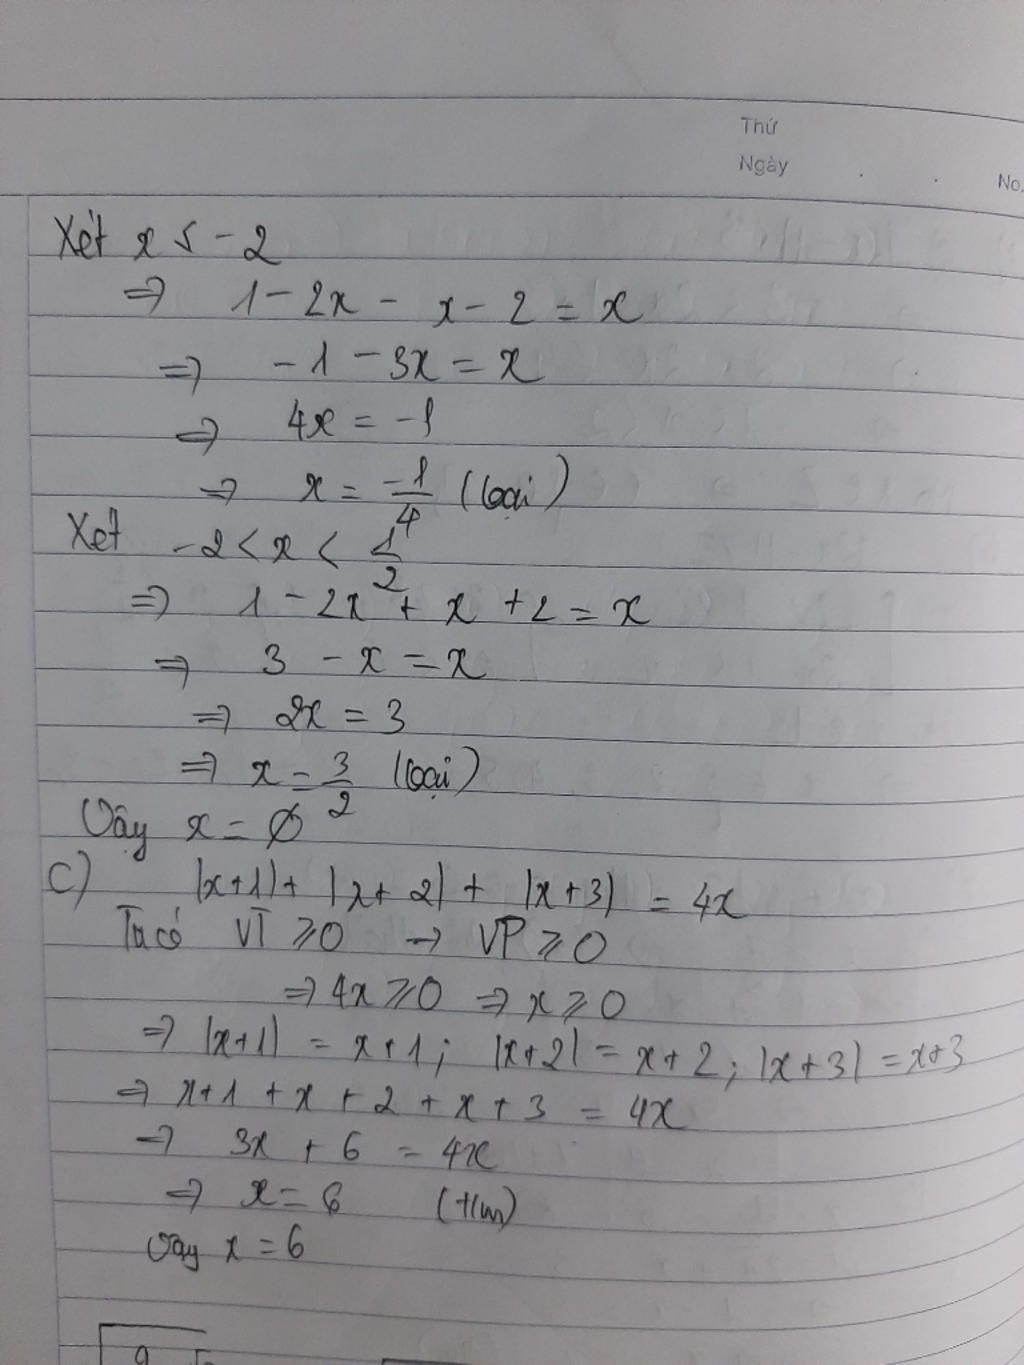 Thứ
Ngày
No.
Xét x ≤ -2
⇒ 1 - 2x - x - 2 = x
⇒ -1 - 3x = x
⇒ 4x = -1
⇒ x = -1/4 (loại)
Xét -2 < x < 1/2
⇒ 1 - 2x + x + 2 = x
⇒ 3 - x = x
⇒ 2x = 3
⇒ x = 3/2 (loại)
Vậy x = ∅
c) |x+1| + |x+2| + |x+3| = 4x
Ta có VT ⩾ 0 → VP ⩾ 0
⇒ 4x ⩾ 0 ⇒ x ⩾ 0
⇒ |x+1| = x+1; |x+2| = x+2; |x+3| = x+3
⇒ x+1 + x + 2 + x + 3 = 4x
⇒ 3x + 6 = 4x
⇒ x = 6 (t/m)
Vậy x = 6